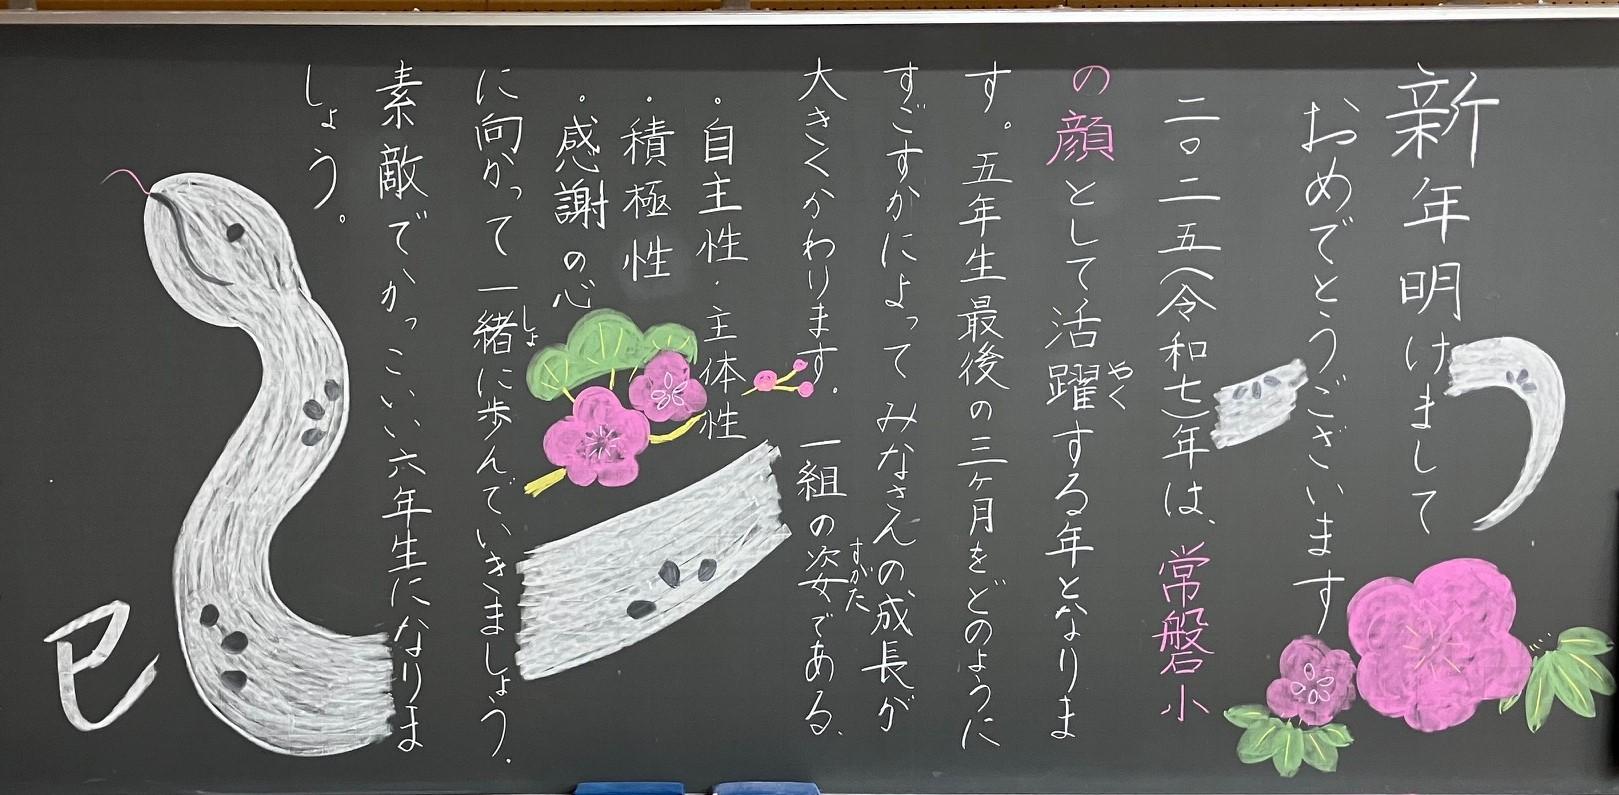 新年明けまして
おめでとうございます
二〇二五(令和七)年は、常磐小
の顔として活躍する年となりま
す。五年生最後の三ヶ月をどのように
すごすかによって みなさんの成長が
大きくかわります。一組の姿である、
・自主性・主体性
・積極性
・感謝の心
に向かって一緒に歩んでいきましょう。
素敵でかっこいい六年生になりま
しょう。
巳
やく
すがた
しょ